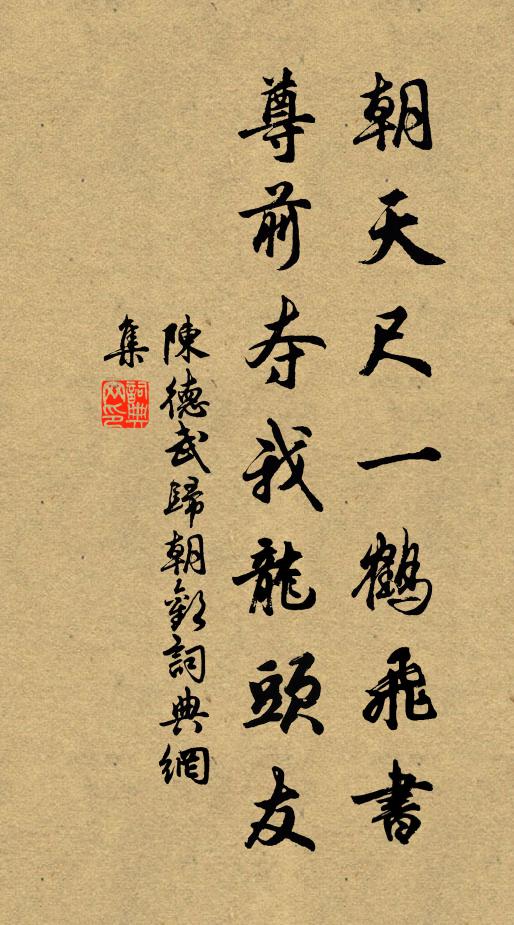 朝天尺一鶴飛書
尊前夺我龍頭友
陳德武歸朝歡詞典網
集
詞典
网印